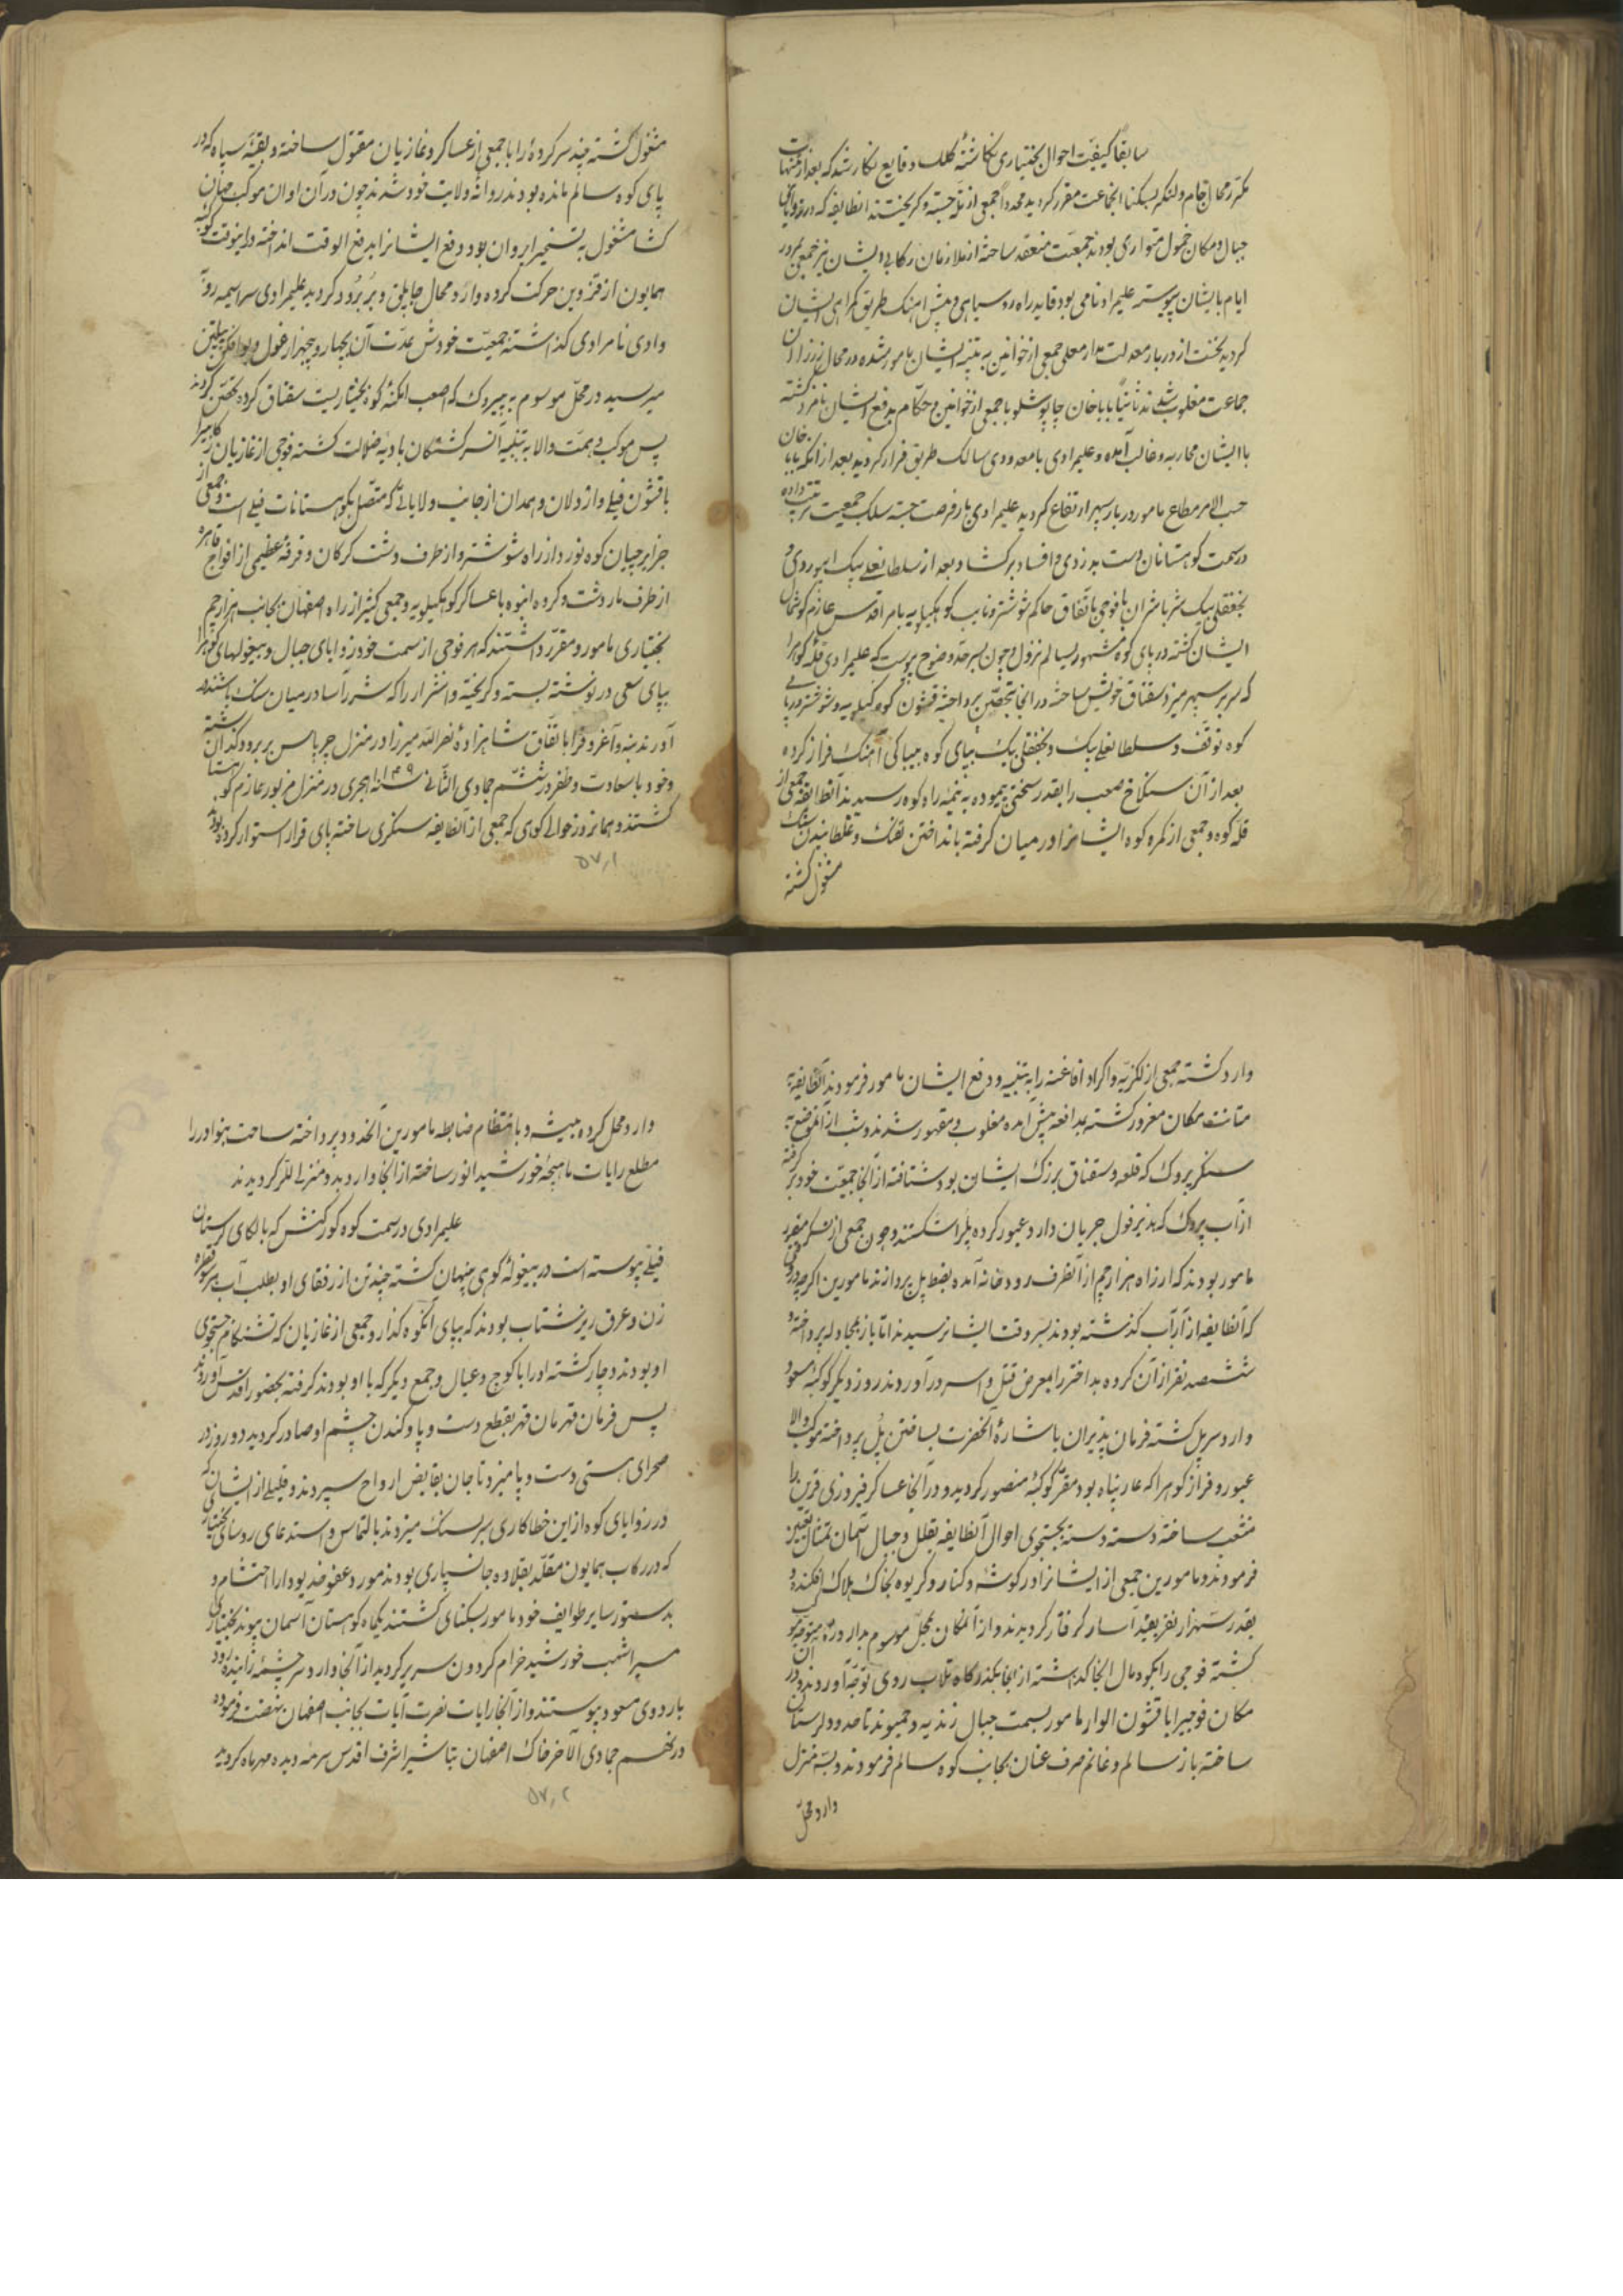 سابقا کیفیت احوال بختیاری نکاشتهٔ کلک وقایع نکار شد که بعد از تنبیهات
مکرر محال جام و لنکر بسکنا انجماعت مقرر کردیده مجددا جمعی از تله جسته و کریختند انطایفه که در زوایای
جبال و مکان خمول متواری بودند جمعیت منعقد ساخته از ملازمان رکابی ایشان نیز جمعی در
ایام بایشان پیوسته علیمراد نامی بود قاید راه روسیاهی و پیش اهنک طریق کمراهی ایشان
کردید نخست از دربار معدلت مدار معلی جمعی از خوانین به تنبیه ایشان مامور شده در محال
جماعت مغلوب شدند ثانیا باباخان چاپوشلو با جمعی از خوانین و حکام بدفع ایشان نامزد کشته
با ایشان محاربه و غالب آمده و علیمرادی با معدودی سالک طریق فرار کردید بعد از آنکه بابا خان
حسب الامر مطاع مامور دربار سپهر ارتفاع کردید علیمرادی باز فرصت جسته سلک جمعیت ترتیب داده
در سمت کوهستانات دست بدزدی و افساد برکشاد و بعد از سلطانعلی بیک ابیوردی و
نجفقلی بیک با فوجی باتفاق حاکم شوشتر و نایب کوهکیلویه بامر اقدس عازم کوشمال
ایشان کشته در پای کوه مشهور بسالم نزول و چون بسرحد وضوح پیوست که علیمرادی قلهٔ کوهرا
که سر بر سپهر میزد سقناق خویش ساخته در انجا بتحصن پرداخته قشون کوهکیلویه و شوشتر در پای
کوه توقف و سلطانعلی بیک و نجفقلی بیک بپای کوه بیباکی آهنک فراز کرده
بعد از آن سنکلاخ صعب را بقدر سختی پیموده به نیمهٔ راه کوه رسیدند آنطایفه جمعی از
قلهٔ کوه و جمعی از کمره کوه ایشانرا در میان کرفته بانداختن تفنک و غلطانیدن سنک
مشغول کشته
مشغول کشته چند سرکرده را با جمعی از عساکر و غازیان مقتول ساخته و بقیهٔ سپاه که در
پای کوه سالم مانده بودند روانهٔ ولایت خود شدند چون در آن اوان موکب جهان
کشا مشغول به تسخیر ایروان بود دفع ایشانرا بدفع الوقت انداخته در اینوقت کوکبه
همایون از قزوین حرکت کرده وارد محال جاپلق و بربرود کردید علیمرادی سراسیمه رو به
وادی نامرادی کذاشته جمعیت خودش بمدت آن بچهار و پنجهزار غول
میرسید در محل موسوم به بیروک که اصعب امکنهٔ کوه بختیاریست سقناق کرده تحصن کردند
پس موکب همت والا به تنبیه آن سرکشتکان بادیهٔ ضلالت کشته فوجی از غازیان
با قشون فیلی و اردلان و همدان از جانب ولایاتی که متصل بکوهستانات فیلی است و جمعی از
جزایرچیان کوه نورد از راه شوشتر و از طرف دشت کرکان و فرقهٔ عظیمی از افواج قاهره
از طرف ماردشت و کروه انبوه با عساکر کوهکیلویه و جمعی کثیر از راه اصفهان بجانب هزارچم
بختیاری مامور و مقرر داشتند که هر فوجی از سمت خود زوایای جبال و بیغولهای کوهرا
بپای سعی درنوشته بسته و کریخته و اشرار را که شرر آسا در میان سنک باشند در
آورند بنه و آغروق را باتفاق شاهزاده نصرالله میرزا در منزل چرپاس بربرود کذاشته
و خود با سعادت و ظفر در ششم جمادی الثانی سنه ۱۱۴۹ هجری در منزل مزبور عازم کوهستان
کشتند و همانروز حوالی کوهی که جمعی از آنطایفه سنکری ساخته پای قرار استوار کرده بودند
۵۷٫۱
وارد کشته جمعی از لکزیه و اکراد و افاغنه را به تنبیه و دفع ایشان مامور فرمودند آنطایفه به
متانت مکان مغرور کشته بمدافعه پیش آمده مغلوب و مقهور شدند و شب از آنموضع به
سنکر بیروک که قلعه و سقناق بزرک ایشان بود شتافته از آنجا جمعیت خود برکرفته
از آب بیروک که بدزفول جریان دارد عبور کرده پلرا شکستند و چون جمعی از عسکر مقرر
مامور بودند که از راه هزارچم از آنطرف رودخانه آمده بضبط پل پردازند مامورین اکرچه وقتی
که آنطایفه از آن آب کذشته بودند بسروقت ایشان رسیدند اما باز بمجادله پرداخته و
ششصد نفر از آن کروه بد اختر را بمعرض قتل و اسر در آوردند روز دیکر کوکبهٔ مسعود
وارد سر پل کشته فرمان پذیران باشارهٔ آنحضرت بساختن پل پرداخته موکب والا
عبور و فراز کوهرا که پناه بود مقر کوکبهٔ منصور کردید و در آنجا عساکر فیروزی قرین را
منشعب ساخته دسته دسته بجستجوی احوال آنطایفه بقلل و جبال آسمان تمثال تعیین
فرمودند و مامورین جمعی از ایشانرا در کوشه و کنار و کریوه بخاک هلاک افکنده و
بقدر سه هزار نفر بقید اسار کرفتار کردیدند و از آنمکان بمحل موسوم متوجه
کشته فوجی را بکوه مال انجا کداشته از انجا بکذرکاه تلاب روی توجه آوردند و در آن
مکان فوجیرا با قشون الوار مامور بسمت جبال زندیه و ممیوند تا حدود لرستان
ساخته باز سالم و غانم صرف عنان بجانب کوه سالم فرمودند و بسه منزل
وارد محل
وارد محل کرده بیشه و بانتظام ضابطه مامورین آنحدود پرداخته ساحت نهواند را
مطلع رایات ماهیچهٔ خورشید انور ساخته از آنجا وارد به دو منزلی للر کردیدند
علیمرادی در سمت کوه کورکش که بالکای لرستان
فیلی پیوسته است در بیغولهٔ کوهی پنهان کشته چند تن از رفقای او بطلب آب سبوی
زن و عرق ریز شتاب بودند که بپای آنکوه کذار و جمعی از غازیان که تشنکام جستجوی
او بودند دچار کشته او را با کوچ و عیال و جمع دیکر که با او بودند کرفته بحضور اقدس آوردند
پس فرمان قهرمان قهر بقطع دست و پا و کندن چشم او صادر کردید دو روز در
صحرای هستی دست و پا میزد تا جان بقابض ارواح سپردند و قلیلی از ایشان که
در زوایای کوه از این خطاکاری سر بسنک میزدند بالتماس و استدعای روسای بختیاری
که در رکاب همایون مقلد بقلاده جانسپاری بودند مورد عفو خدیو دارا احتشام و
بدستور سایر طوایف خود مامور بسکنای کشتند یکماه کوهستان آسمان پیوند بختیاری
سیر اشهب خورشید خرام کردون سریر کردید از آنجا وارد سرچشمهٔ زاینده رود
باردوی مسعود پیوستند و از آنجا رایات نصرت آیات بجانب اصفهان نهضت فرموده
در نهم جمادی الاخر خاک اصفهان بتاشیر اشرف اقدس سرمهٔ دیده مهر و ماه کردید
۵۷٫۲